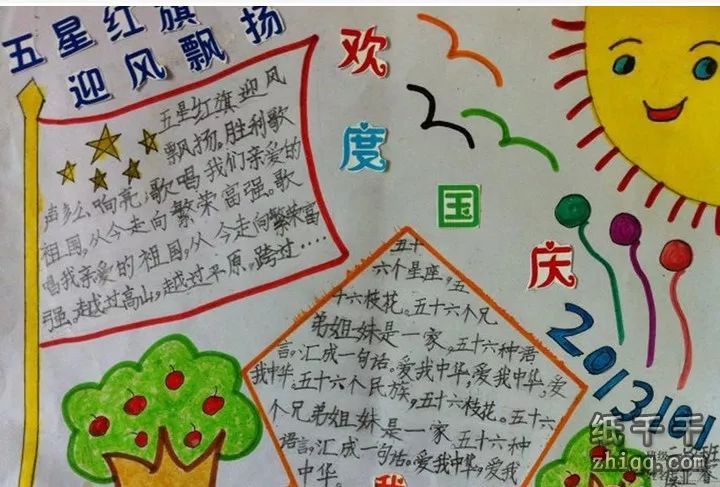 五星红旗
迎风飘扬
欢
度
国
庆
五星红旗迎风
飘扬。胜利歌
声多么响亮,歌唱我们亲爱的
祖国,从今走向繁荣富强。歌
唱我亲爱的祖国,从今走向繁荣富
强。越过高山,越过平原。跨过……
五十
六个星座,五
十六枝花。五十六个兄
弟姐妹是一家,五十六种语
言,汇成一句话。爱我中华,爱我中华,爱
我中华,五十六个民族,五十六枝花。五十六
个兄弟姐妹是一家五十六种
语言,汇成一句话。爱我中华,爱我
中华。
我
2013101
纸千千
zhiqq.com
班